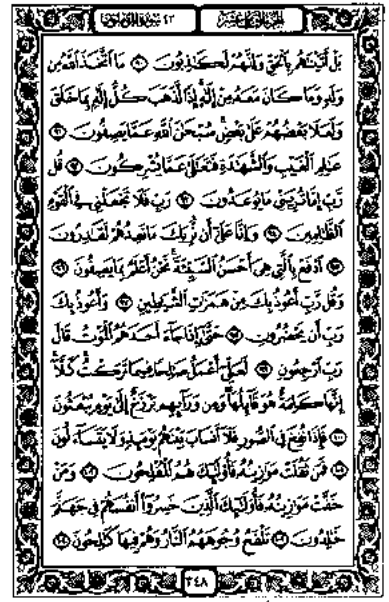 الجزء الثامن عشر ٢٣ سورة المؤمنون
بَلْ أَتَيْنَاهُم بِالْحَقِّ وَإِنَّهُمْ لَكَاذِبُونَ ٩٠ مَا اتَّخَذَ اللَّهُ مِن
وَلَدٍ وَمَا كَانَ مَعَهُ مِنْ إِلَٰهٍ إِذًا لَّذَهَبَ كُلُّ إِلَٰهٍ بِمَا خَلَقَ
وَلَعَلَا بَعْضُهُمْ عَلَىٰ بَعْضٍ سُبْحَانَ اللَّهِ عَمَّا يَصِفُونَ ٩١
عَالِمِ الْغَيْبِ وَالشَّهَادَةِ فَتَعَالَىٰ عَمَّا يُشْرِكُونَ ٩٢ قُل
رَّبِّ إِمَّا تُرِيَنِّي مَا يُوعَدُونَ ٩٣ رَبِّ فَلَا تَجْعَلْنِي فِي الْقَوْمِ
الظَّالِمِينَ ٩٤ وَإِنَّا عَلَىٰ أَن نُّرِيَكَ مَا نَعِدُهُمْ لَقَادِرُونَ
٩٥ ادْفَعْ بِالَّتِي هِيَ أَحْسَنُ السَّيِّئَةَ نَحْنُ أَعْلَمُ بِمَا يَصِفُونَ ٩٦
وَقُل رَّبِّ أَعُوذُ بِكَ مِنْ هَمَزَاتِ الشَّيَاطِينِ ٩٧ وَأَعُوذُ بِكَ
رَبِّ أَن يَحْضُرُونِ ٩٨ حَتَّىٰ إِذَا جَاءَ أَحَدَهُمُ الْمَوْتُ قَالَ
رَبِّ ارْجِعُونِ ٩٩ لَعَلِّي أَعْمَلُ صَالِحًا فِيمَا تَرَكْتُ كَلَّا
إِنَّهَا كَلِمَةٌ هُوَ قَائِلُهَا وَمِن وَرَائِهِم بَرْزَخٌ إِلَىٰ يَوْمِ يُبْعَثُونَ
١٠٠ فَإِذَا نُفِخَ فِي الصُّورِ فَلَا أَنسَابَ بَيْنَهُمْ يَوْمَئِذٍ وَلَا يَتَسَاءَلُونَ
١٠١ فَمَن ثَقُلَتْ مَوَازِينُهُ فَأُولَٰئِكَ هُمُ الْمُفْلِحُونَ ١٠٢ وَمَنْ
خَفَّتْ مَوَازِينُهُ فَأُولَٰئِكَ الَّذِينَ خَسِرُوا أَنفُسَهُمْ فِي جَهَنَّمَ
خَالِدُونَ ١٠٣ تَلْفَحُ وُجُوهَهُمُ النَّارُ وَهُمْ فِيهَا كَالِحُونَ ١٠٤
٣٤٨